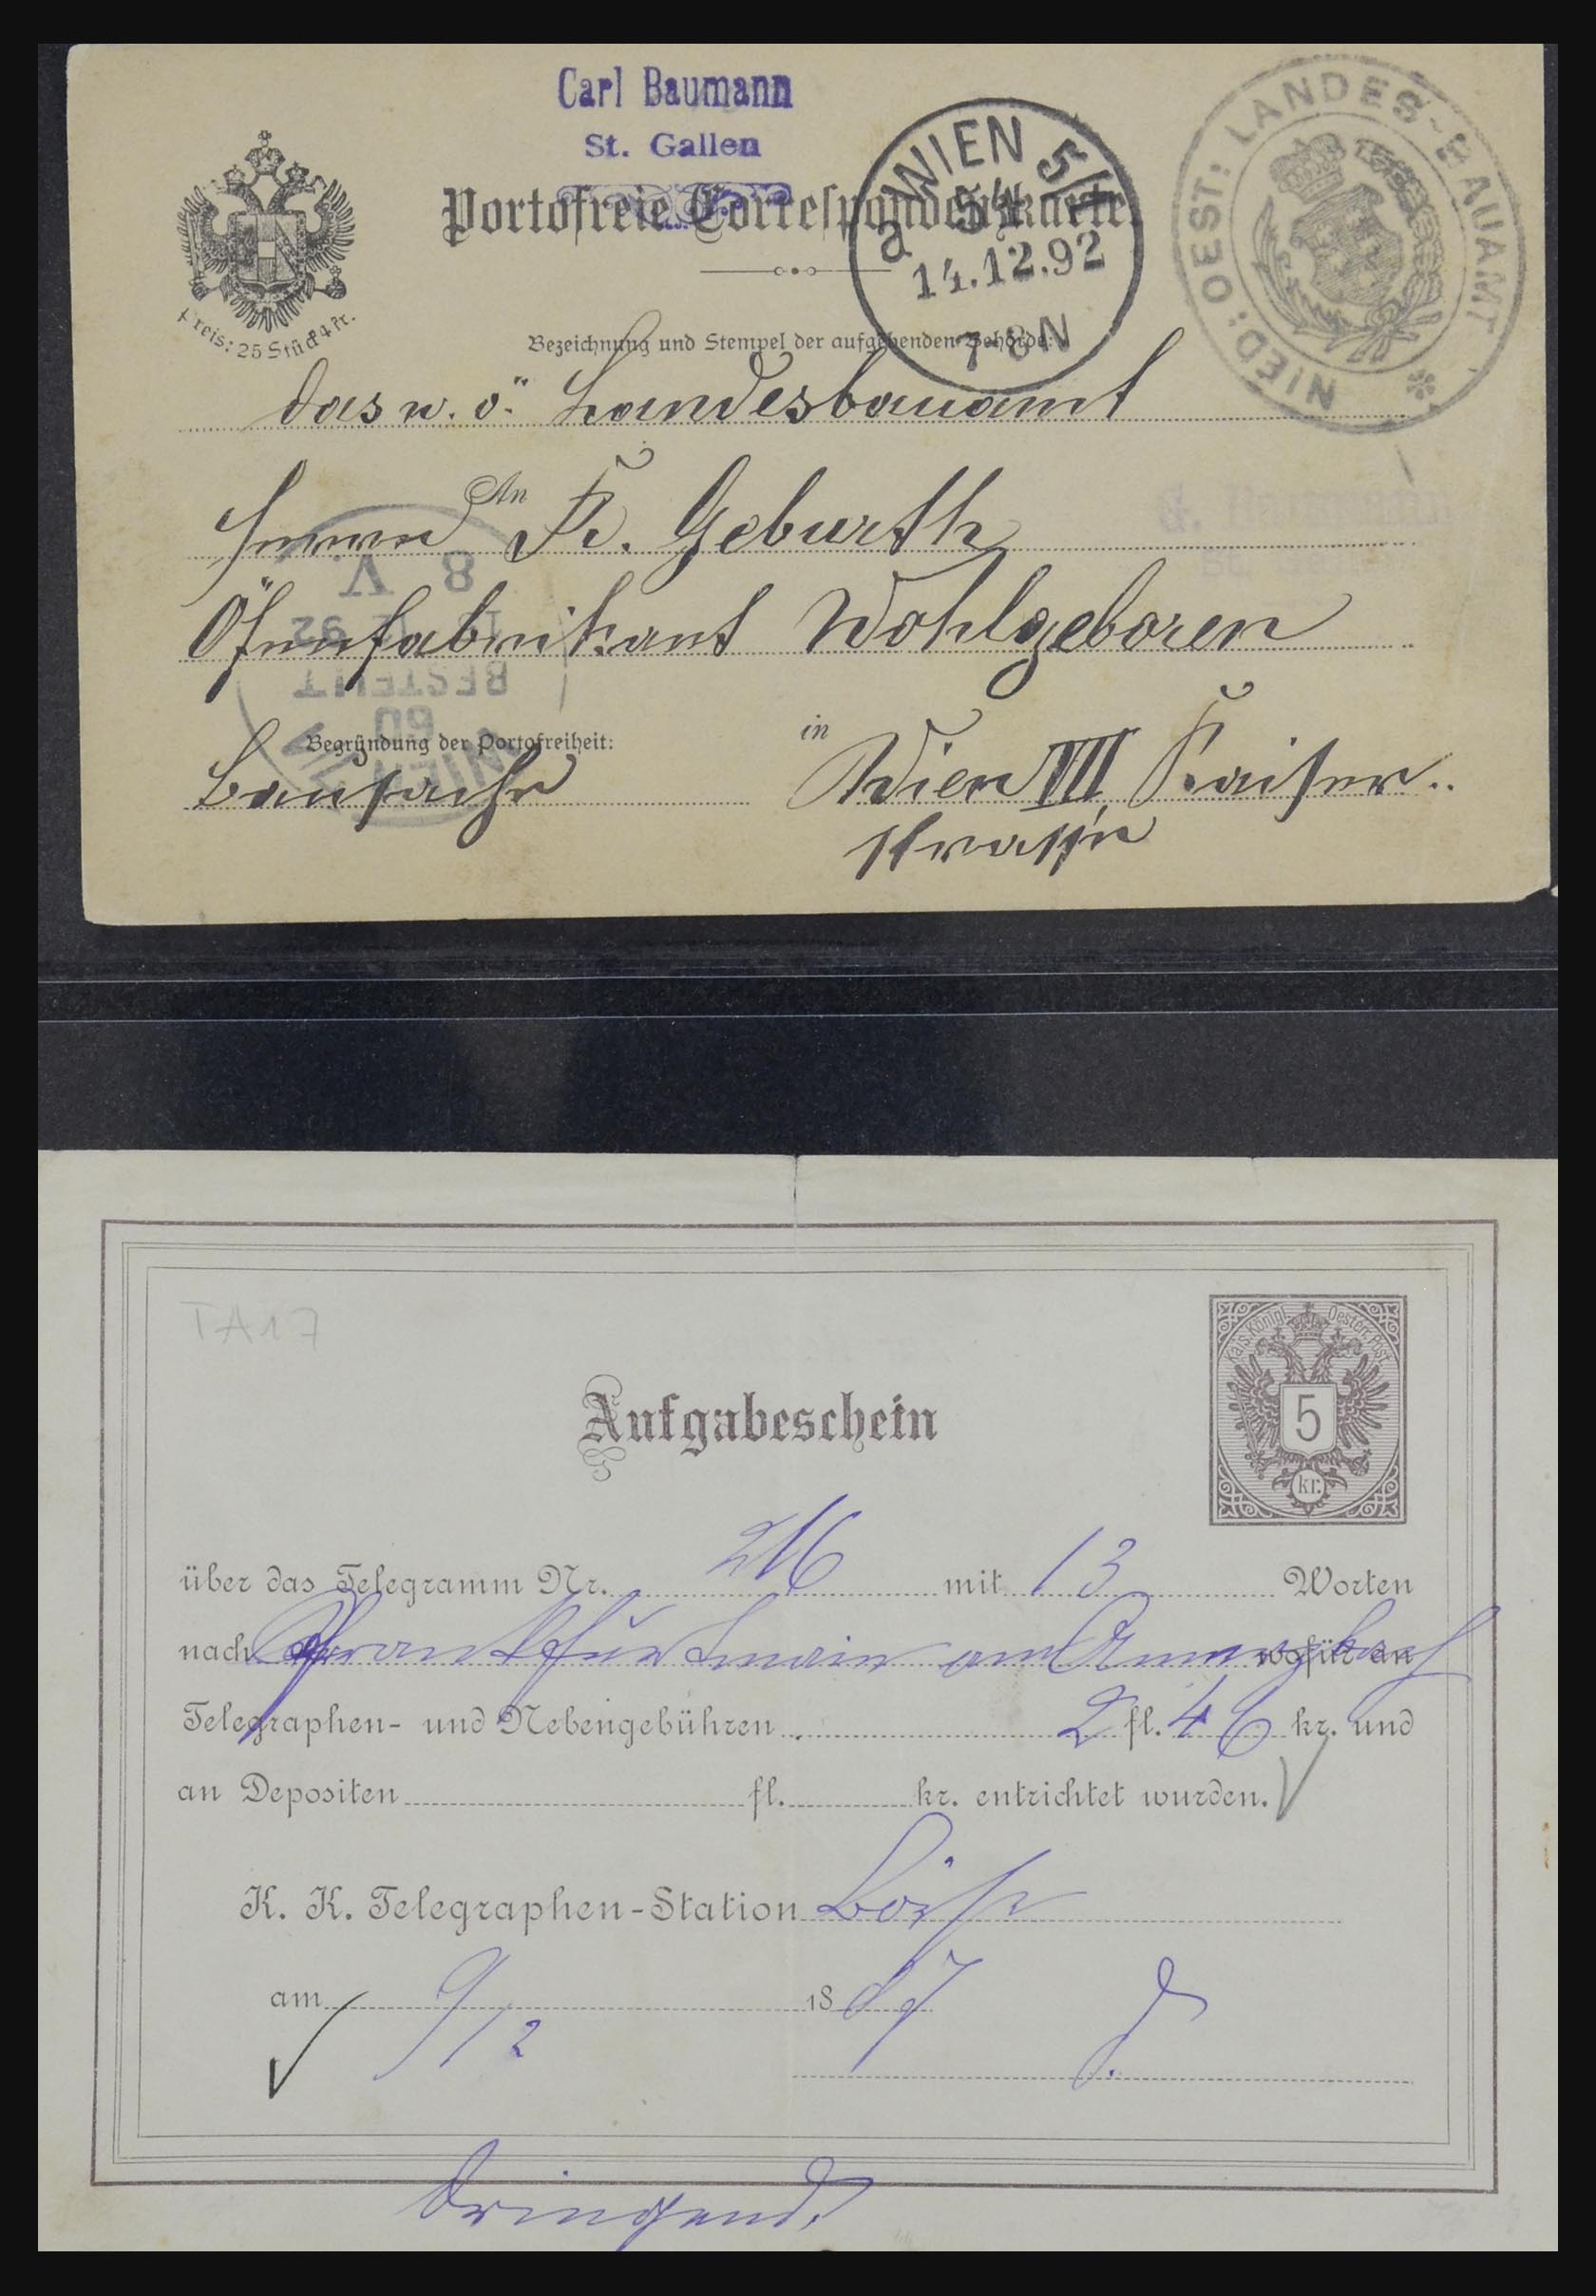 Carl Baumann
St. Gallen
Portofreie Correspondenzkarte.
WIEN 5/1
54
a
14.12.92
7-8N
NIED: OEST: LANDES-BAUAMT
Preis: 25 Stück 4 kr.
Bezeichnung und Stempel der aufgebenden Behörde:
das n. ö. Landesbauamt
An
Herrn Fr. Geburth
Öfenfabrikant Wohlgeboren
8 V.
92
BESTELLT
WIEN
60
Begründung der Portofreiheit:
Bausache
in
Wien VII, Kaiser..
strasse
TA17
Kais. Königl. Oesterr. Post
5
kr.
Aufgabeschein
über das Telegramm Nr. 216 mit 13 Worten
nach Frankfurtmain wofür an
Telegraphen- und Nebengebühren 2 fl. 46 kr. und
an Depositen fl. kr. entrichtet wurden.
K. K. Telegraphen-Station Börse
am 9/12 1887
Dringend.